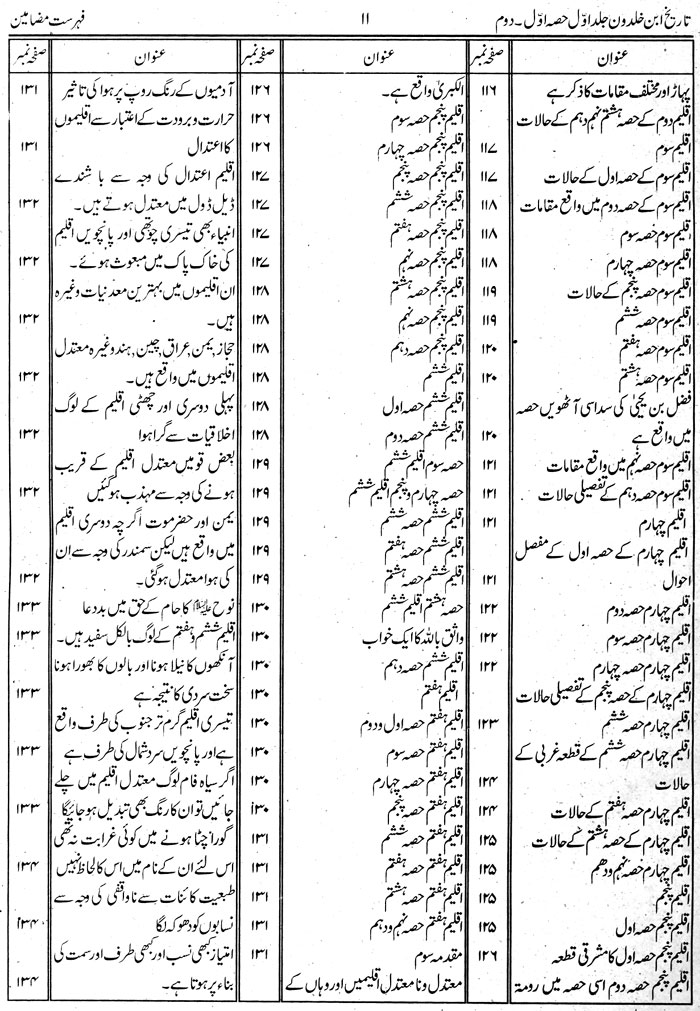 تاریخ ابن خلدون جلد اوّل حصہ اوّل ۔ دوم
۱۱
فہرست مضامین
عنوان
صفحہ نمبر
پہاڑ اور مختلف مقامات کا ذکر ہے ۱۱۶
اقلیم دوم کے حصہ ہشتم نہم دہم کے حالات
اقلیم سوم ۱۱۷
اقلیم سوم کے حصہ اول کے حالات ۱۱۷
اقلیم سوم کے حصہ دوم میں واقع مقامات ۱۱۸
اقلیم سوم حصہ سوم ۱۱۸
اقلیم سوم حصہ چہارم ۱۱۸
اقلیم سوم حصہ پنجم کے حالات ۱۱۹
اقلیم سوم حصہ ششم ۱۱۹
اقلیم سوم حصہ ہفتم ۱۲۰
اقلیم سوم حصہ ہشتم ۱۲۰
فضل بن یحیٰی کی سد اسی آٹھویں حصہ
میں واقع ہے ۱۲۰
اقلیم سوم حصہ نہم میں واقع مقامات ۱۲۱
اقلیم سوم حصہ دہم کے تفصیلی حالات ۱۲۱
اقلیم چہارم ۱۲۱
اقلیم چہارم کے حصہ اول کے مفصل
احوال ۱۲۱
اقلیم چہارم حصہ دوم ۱۲۲
اقلیم چہارم حصہ سوم ۱۲۲
اقلیم چہارم حصہ چہارم ۱۲۲
اقلیم چہارم کے حصہ پنجم کے تفصیلی حالات
اقلیم چہارم حصہ ششم ۱۲۳
اقلیم چہارم حصہ ششم کے قطعہ غربی کے
حالات ۱۲۴
اقلیم چہارم حصہ ہفتم کے حالات ۱۲۴
اقلیم چہارم کے حصہ ہشتم کے حالات ۱۲۵
اقلیم چہارم حصہ نہم و دھم ۱۲۵
اقلیم پنجم ۱۲۵
اقلیم پنجم حصہ اول ۱۲۵
اقلیم پنجم حصہ اول کا مشرقی قطعہ ۱۲۶
اقلیم پنجم حصہ دوم اسی حصہ میں رومۃ
عنوان
صفحہ نمبر
الکبریٰ واقع ہے۔ ۱۲۶
اقلیم پنجم حصہ سوم ۱۲۶
اقلیم پنجم حصہ چہارم ۱۲۶
اقلیم پنجم حصہ پنجم ۱۲۷
اقلیم پنجم حصہ ششم ۱۲۷
اقلیم پنجم حصہ ہفتم ۱۲۷
اقلیم پنجم حصہ نہم ۱۲۷
اقلیم پنجم حصہ ہشتم ۱۲۸
اقلیم پنجم حصہ نہم ۱۲۸
اقلیم پنجم حصہ دہم ۱۲۸
اقلیم ششم ۱۲۸
اقلیم ششم حصہ اول ۱۲۸
اقلیم ششم حصہ دوم ۱۲۸
حصہ سوم اقلیم ششم ۱۲۹
حصہ چہارم و پنجم اقلیم ششم ۱۲۹
اقلیم ششم حصہ ششم ۱۲۹
اقلیم ششم حصہ ہفتم ۱۲۹
اقلیم ششم حصہ ہشتم ۱۲۹
حصہ ہشتم اقلیم ششم ۱۳۰
واثق باللہ کا ایک خواب ۱۳۰
اقلیم ششم حصہ دہم ۱۳۰
اقلیم ہفتم ۱۳۰
اقلیم ہفتم حصہ اول و دوم ۱۳۰
اقلیم ہفتم حصہ سوم ۱۳۰
اقلیم ہفتم حصہ چہارم ۱۳۰
اقلیم ہفتم حصہ پنجم ۱۳۰
اقلیم ہفتم حصہ ششم ۱۳۱
اقلیم ہفتم حصہ ہفتم ۱۳۱
اقلیم ہفتم حصہ ہشتم ۱۳۱
اقلیم ہفتم حصہ نہم و دہم ۱۳۱
مقدمہ سوم ۱۳۱
معتدل و نا معتدل اقلیمیں اور وہاں کے
عنوان
صفحہ نمبر
آدمیوں کے رنگ روپ پر ہوا کی تاثیر ۱۳۱
حرارت و برودت کے اعتبار سے اقلیموں
کا اعتدال ۱۳۱
اقلیم اعتدال کی وجہ سے باشندے
ڈیل ڈول میں معتدل ہوتے ہیں۔ ۱۳۲
انبیاء بھی تیسری چوتھی اور پانچویں اقلیم
کی خاک پاک میں مبعوث ہوئے۔ ۱۳۲
ان اقلیموں میں بہترین معدنیات وغیرہ
ہیں۔ ۱۳۲
حجاز, یمن, عراق, چین, ہند وغیرہ معتدل
اقلیموں میں واقع ہیں۔ ۱۳۲
پہلی دوسری اور چھٹی اقلیم کے لوگ
اخلاقیات سے گرا ہوا ۱۳۲
بعض قومیں معتدل اقلیم کے قریب
ہونے کی وجہ سے مہذب ہو گئیں ۱۳۲
یمن اور حضر موت اگرچہ دوسری اقلیم
میں واقع ہیں لیکن سمندر کی وجہ سے ان
کی ہوا معتدل ہو گئی۔ ۱۳۲
نوح علیہ السلام کا حام کے حق میں بددعا ۱۳۳
اقلیم ششم و ہفتم کے لوگ بالکل سفید ہیں۔ ۱۳۳
آنکھوں کا نیلا ہونا اور بالوں کا بھورا ہونا
سخت سردی کا نتیجہ ہے ۱۳۳
تیسری اقلیم گرم تر جنوب کی طرف واقع
ہے اور پانچویں سرد شمال کی طرف ہے ۱۳۳
اگر سیاہ فام لوگ معتدل اقلیم میں چلے
جائیں تو ان کا رنگ بھی تبدیل ہو جائیگا ۱۳۳
گورا چٹا ہونے میں کوئی غرابت نہ تھی
اس لئے ان کے نام میں اس کا لحاظ نہیں ۱۳۴
طبیعت کائنات سے ناواقفی کی وجہ سے
نسابوں کو دھوکہ لگا ۱۳۴
امتیاز کبھی نسب اور کبھی طرف اور سمت کی
بناء پر ہوتا ہے۔ ۱۳۴